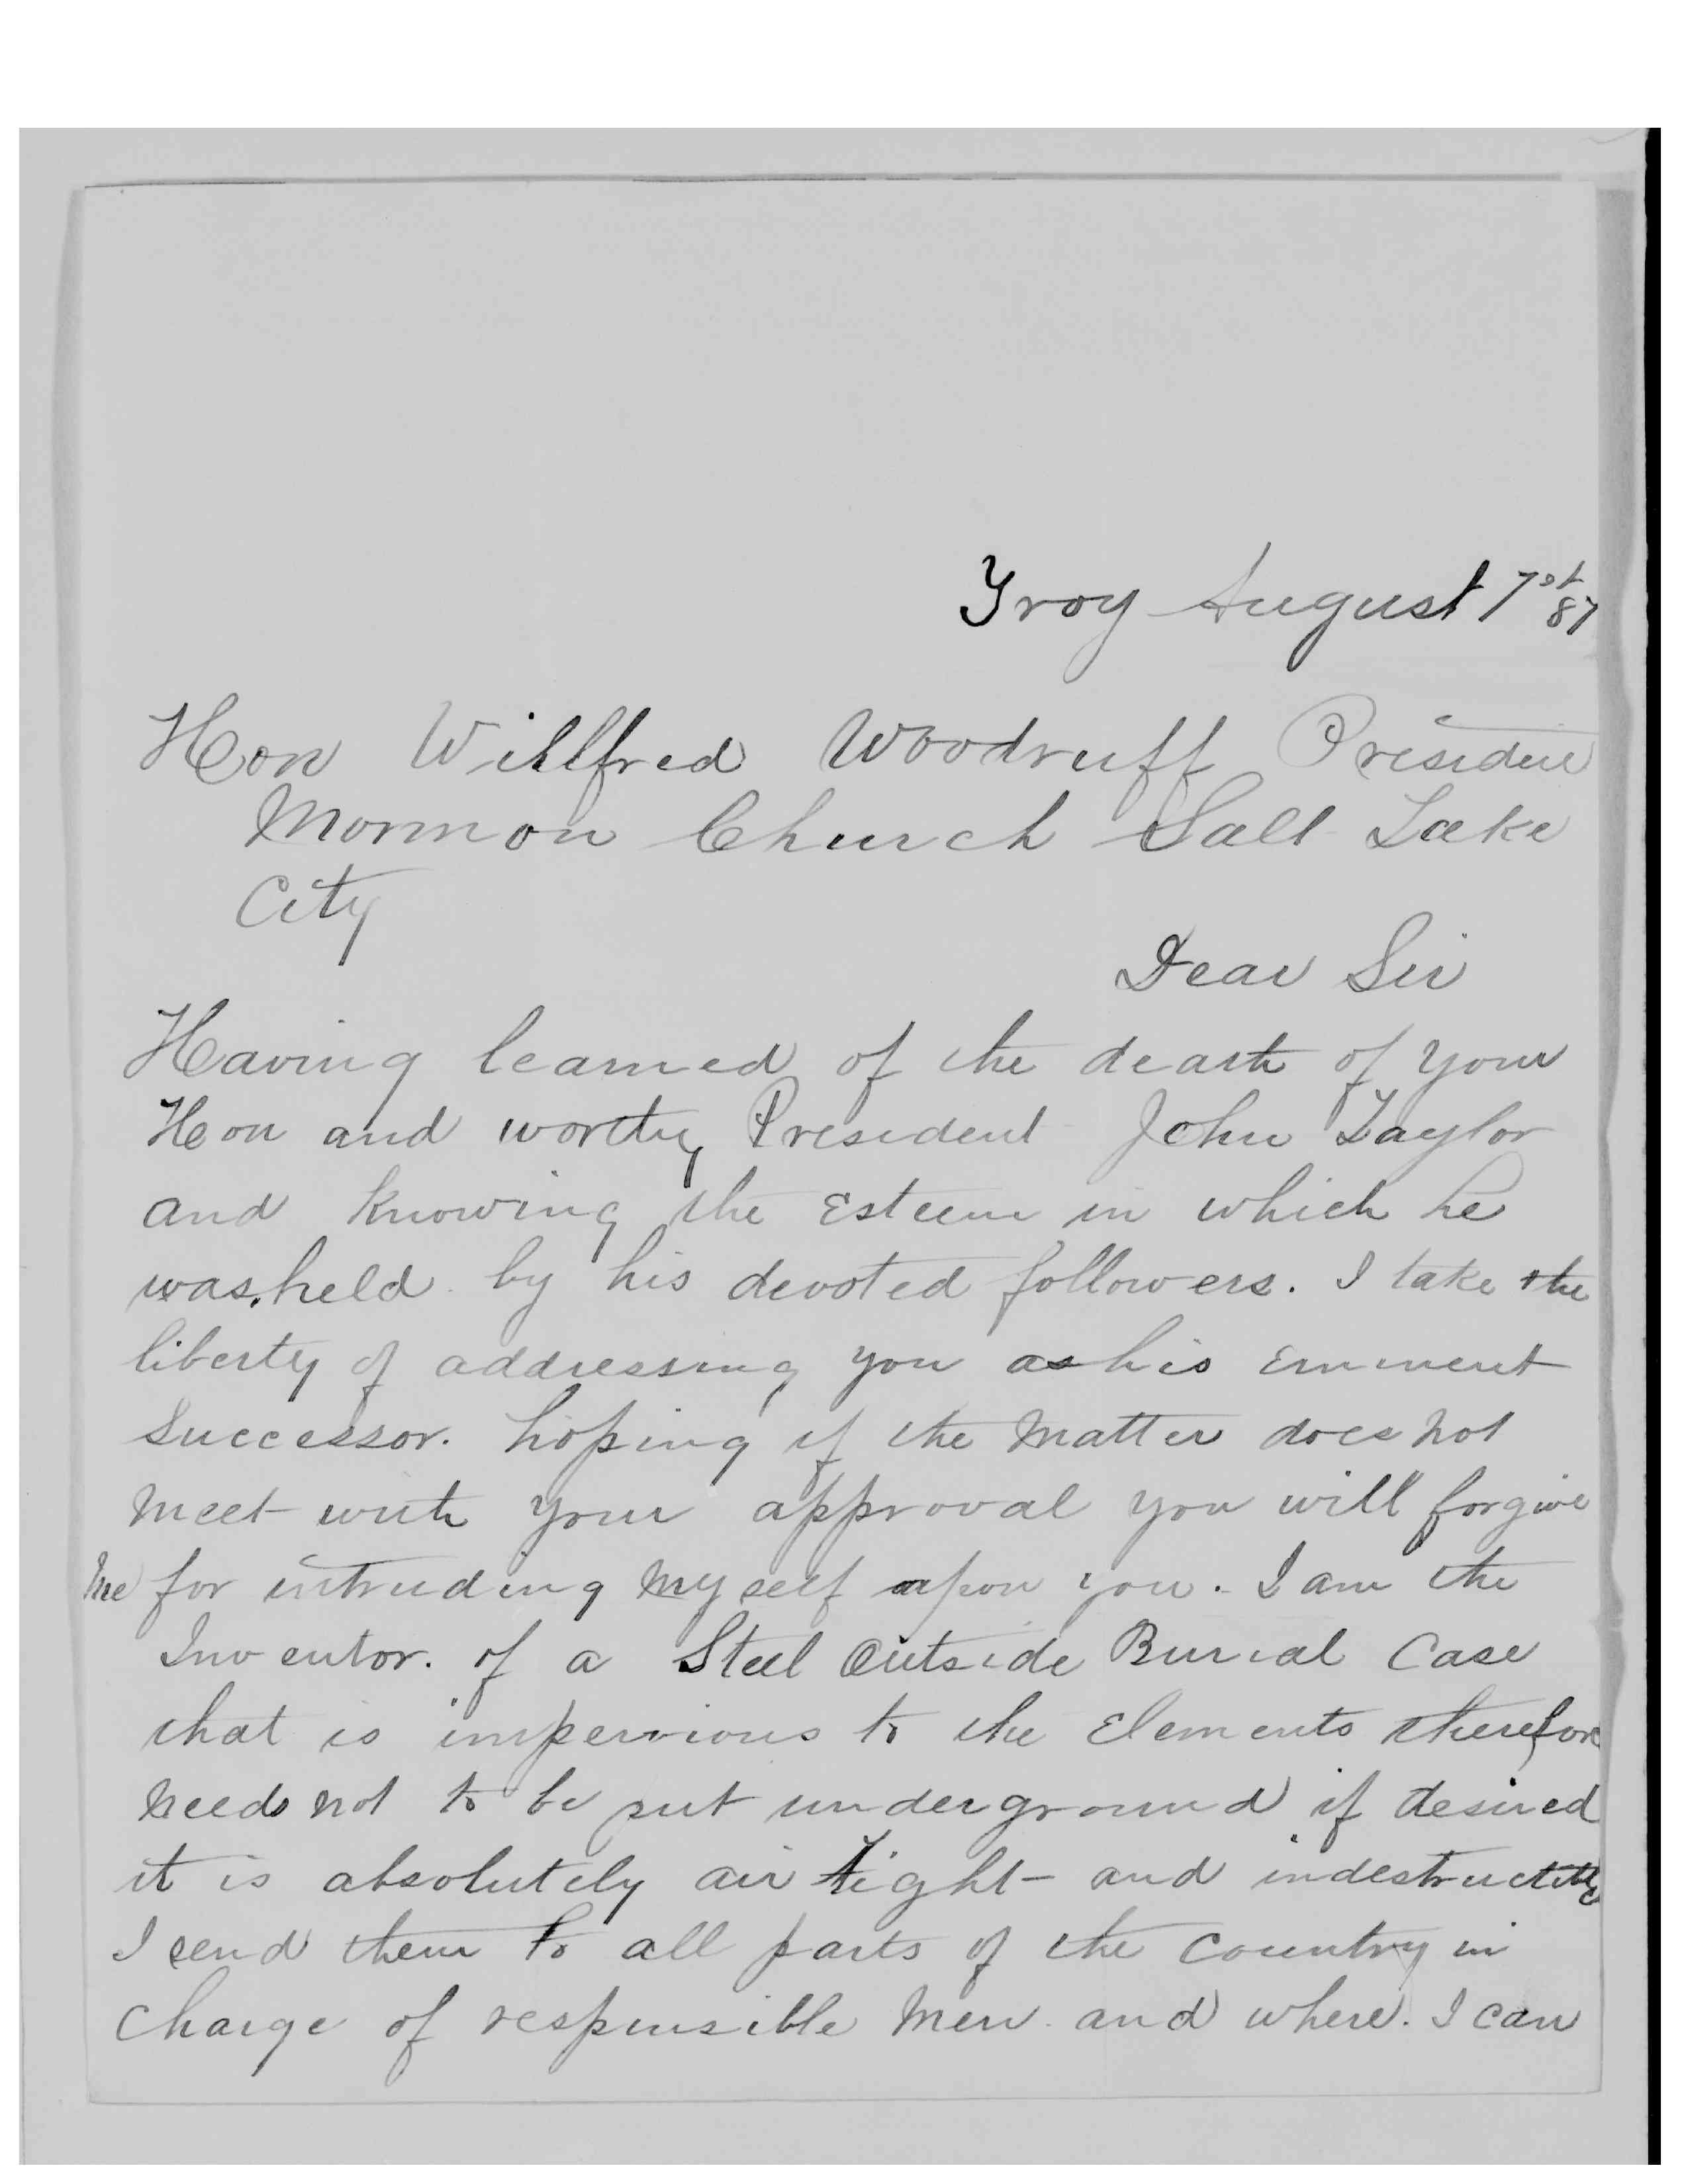 Troy August 1st 87
Hon Willfred Woodruff President
Mormon Church Salt Lake
City
Dear Sir
Having learned of the death of your
Hon and worthy President John Taylor
and knowing the Esteem in which he
was held by his devoted followers. I take the
liberty of addressing you as his Eminent
Successor. hoping if the Matter does not
Meet with your approval you will forgive
Me for intruding Myself upon you. I am the
Inventor. of a Steel Outside Burial Case
that is impervious to the Elements therefore
Needs not to be put underground if desired
it is absolutely air tight - and indestructible
I send them to all parts of the Country in
Charge of responsible Men and where. I can